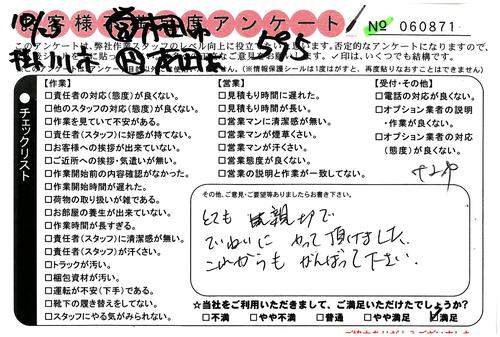 お客様 満足度アンケート
№ 060871
このアンケートは、弊社作業スタッフのレベル向上に役立て
否定的なアンケートになりますので、
✓印は、いくつでも結構です。
(※情報保護シールは1度はがすと、再度貼りなおすことはできません)
595
チェックリスト
【作業】
□責任者の対応(態度)が良くない。
□他のスタッフの対応(態度)が良くない。
□作業を見ていて不安がある。
□責任者(スタッフ)に好感が持てない。
□お客様への挨拶が出来ていない。
□ご近所への挨拶・気遣いが無い。
□作業開始前の内容確認がなかった。
□作業開始時間が遅れた。
□荷物の取り扱いが雑である。
□お部屋の養生が出来ていない。
□作業時間が長すぎる。
□責任者(スタッフ)に清潔感が無い。
□責任者(スタッフ)が汗くさい。
□トラックが汚い。
□梱包資材が汚い。
□運転が不安(下手)である。
□靴下の履き替えをしてない。
□スタッフにやる気がみられない。
【営業】
□見積もり時間に遅れた。
□見積もり時間が長い。
□営業マンに清潔感が無い。
□営業マンが煙草くさい。
□営業マンが汗くさい。
□営業態度が良くない。
□営業の説明と作業が一致してない。
【受付・その他】
□電話の対応が良くない。
□オプション業者の説明
・作業が良くない。
□オプション業者の対応
(態度)が良くない。
その他、ご意見・ご要望等ありましたらお書き下さい。
とても 親切で
ていねいに やって頂けました。
これからも がんばって下さい。
☆当社をご利用いただきまして、ご満足いただけたでしょうか?
□不満 □やや不満 □普通 □やや満足 ☑満足